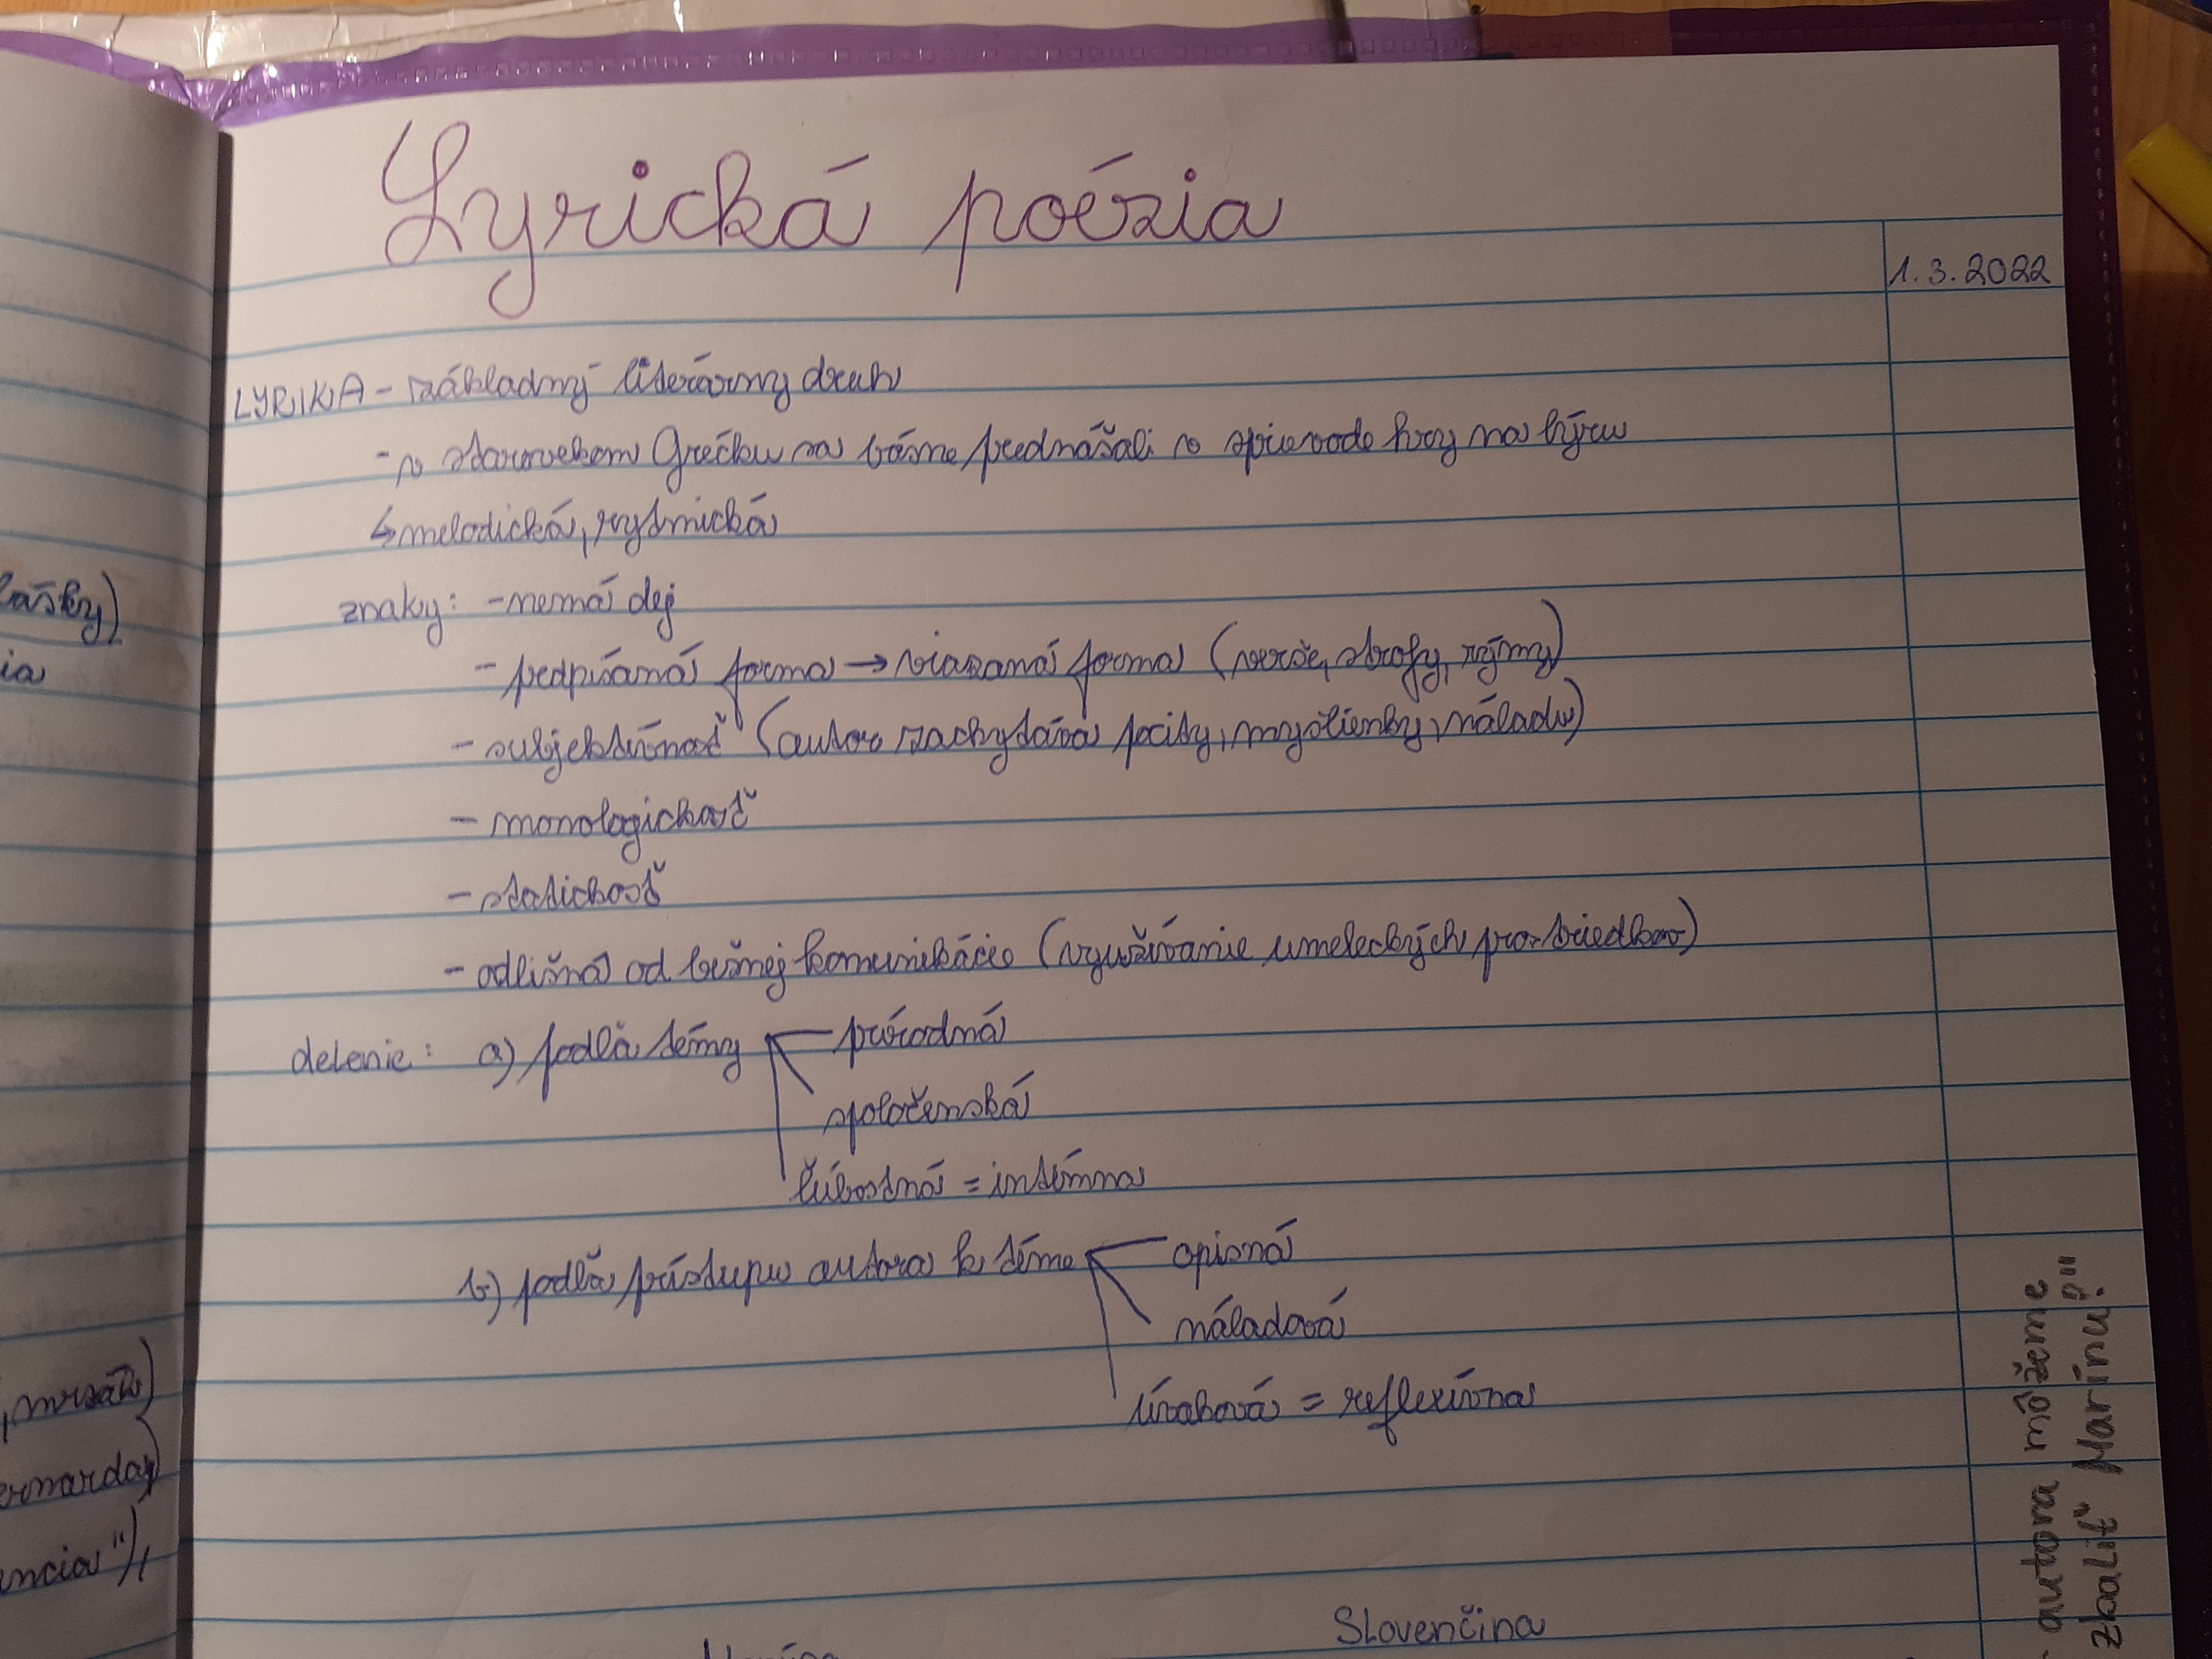 Lyrická poézia
1.3.2022
LYRIKA - základný literárny druh
- v starovekom Grécku sa básne prednášali v sprievode hry na lýru
↳ melodická, rytmická
znaky: - nemá dej
- predpísaná forma → viazaná forma (verše, strofy, rýmy)
- subjektívnosť (autor zachytáva pocity, myšlienky, náladu)
- monologickosť
- statickosť
- odlišná od bežnej komunikácie (využívanie umeleckých prostriedkov)
delenie: a) podľa témy prírodná
spoločenská
ľúbostná = intímna
b) podľa prístupu autora k téme opisná
náladová
úvahová = reflexívna
Slovenčina
autora môžeme
zbaliť Marínu?"